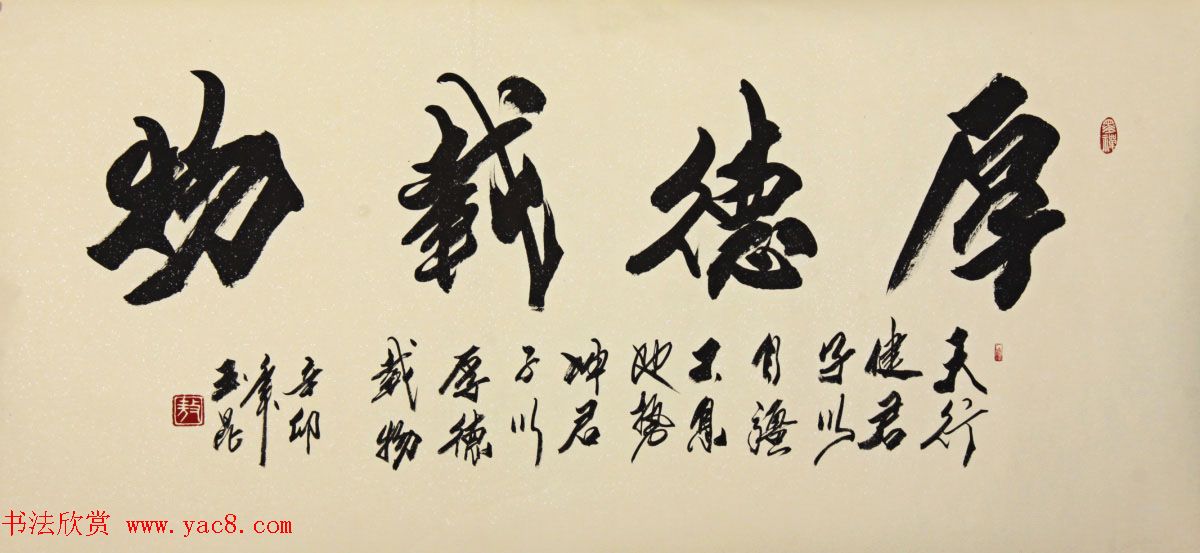 厚德载物
天行
健君
子以
自强
不息
地势
坤君
子以
厚德
载物
辛卯
年
玉昆
敖
书法欣赏 www.yac8.com